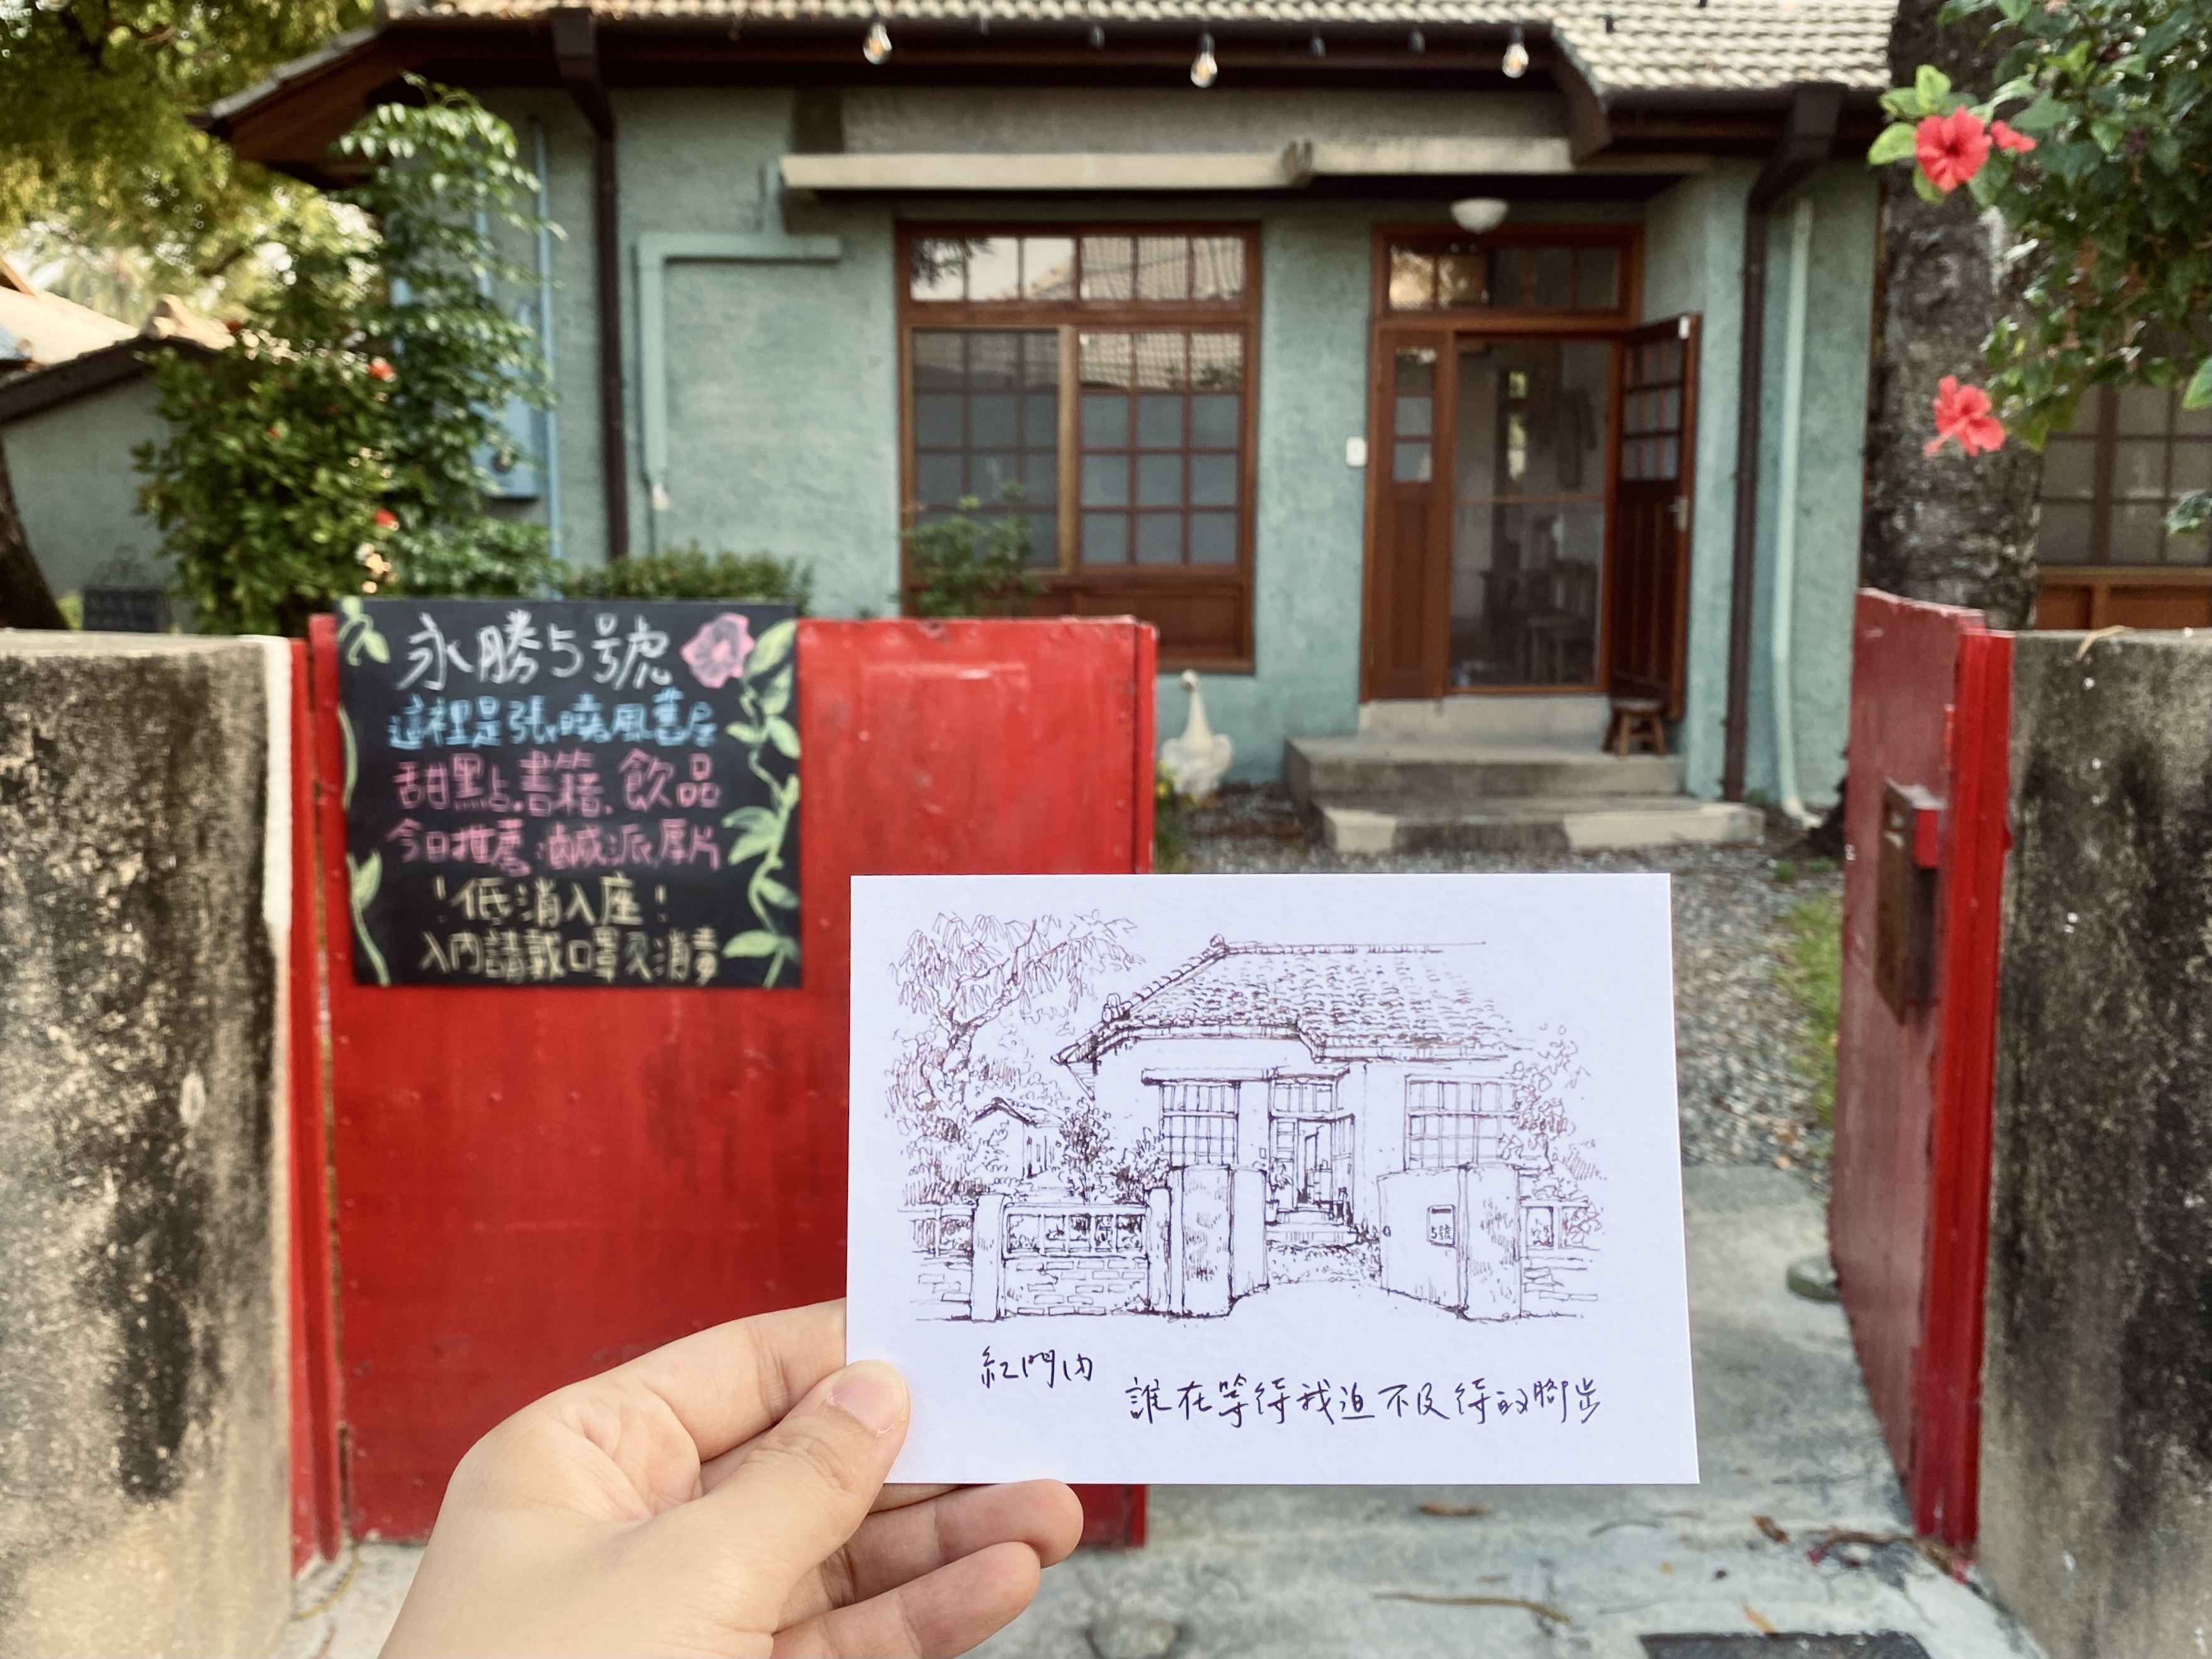 永勝5號
這裡是張曉風舊居
甜點.書籍.飲品
今日推薦:鹹派厚片
!低消入座!
入內請戴口罩及消毒
5號
紅門內
誰在等待我迫不及待的腳步